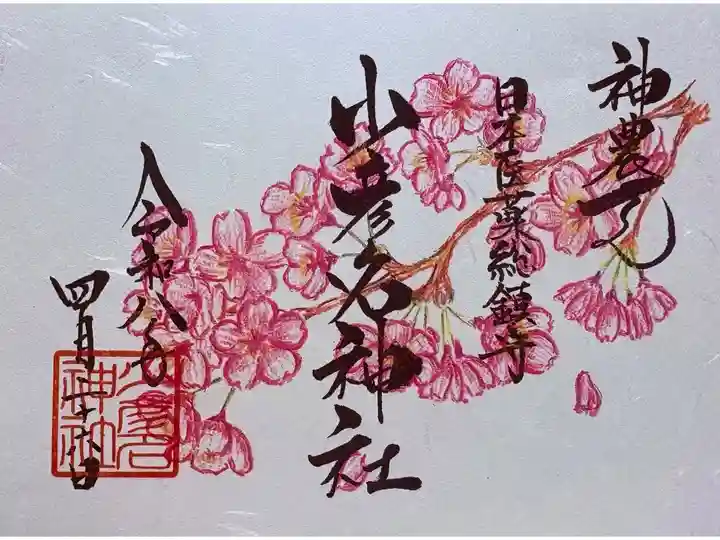 神農さん
日本医薬総鎮守
少彦名神社
令和八年
四月十六日
少彦名神社